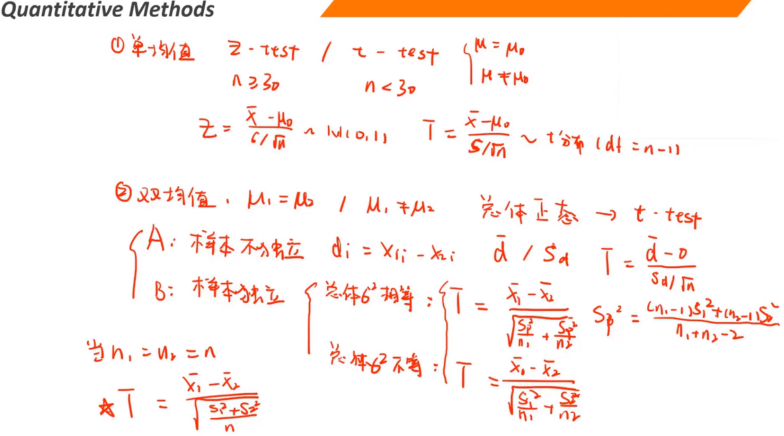 Quantitative Methods
① 单均值 z-test / t-test { μ = μ₀
n≥30 n<30 μ ≠ μ₀
Z = (x̄ - μ₀)/(σ/√n) ~ N(0,1) T = (x̄ - μ₀)/(S/√n) ~ t分布 (df = n-1)
② 双均值. μ₁ = μ₂ / μ₁ ≠ μ₂ 总体正态 → t-test
{ A: 样本不独立 di = x₁i - x₂i d̄ / Sd T = (d̄ - 0)/(Sd/√n)
B: 样本独立 { 总体σ²相等: { T = (x̄₁ - x̄₂)/√(Sp²/n₁ + Sp²/n₂) Sp² = ((n₁-1)S₁² + (n₂-1)S₂²)/(n₁+n₂-2)
总体σ²不等: T = (x̄₁ - x̄₂)/√(S₁²/n₁ + S₂²/n₂)
当 n₁ = n₂ = n
☆ T = (x̄₁ - x̄₂)/√((S₁² + S₂²)/n)